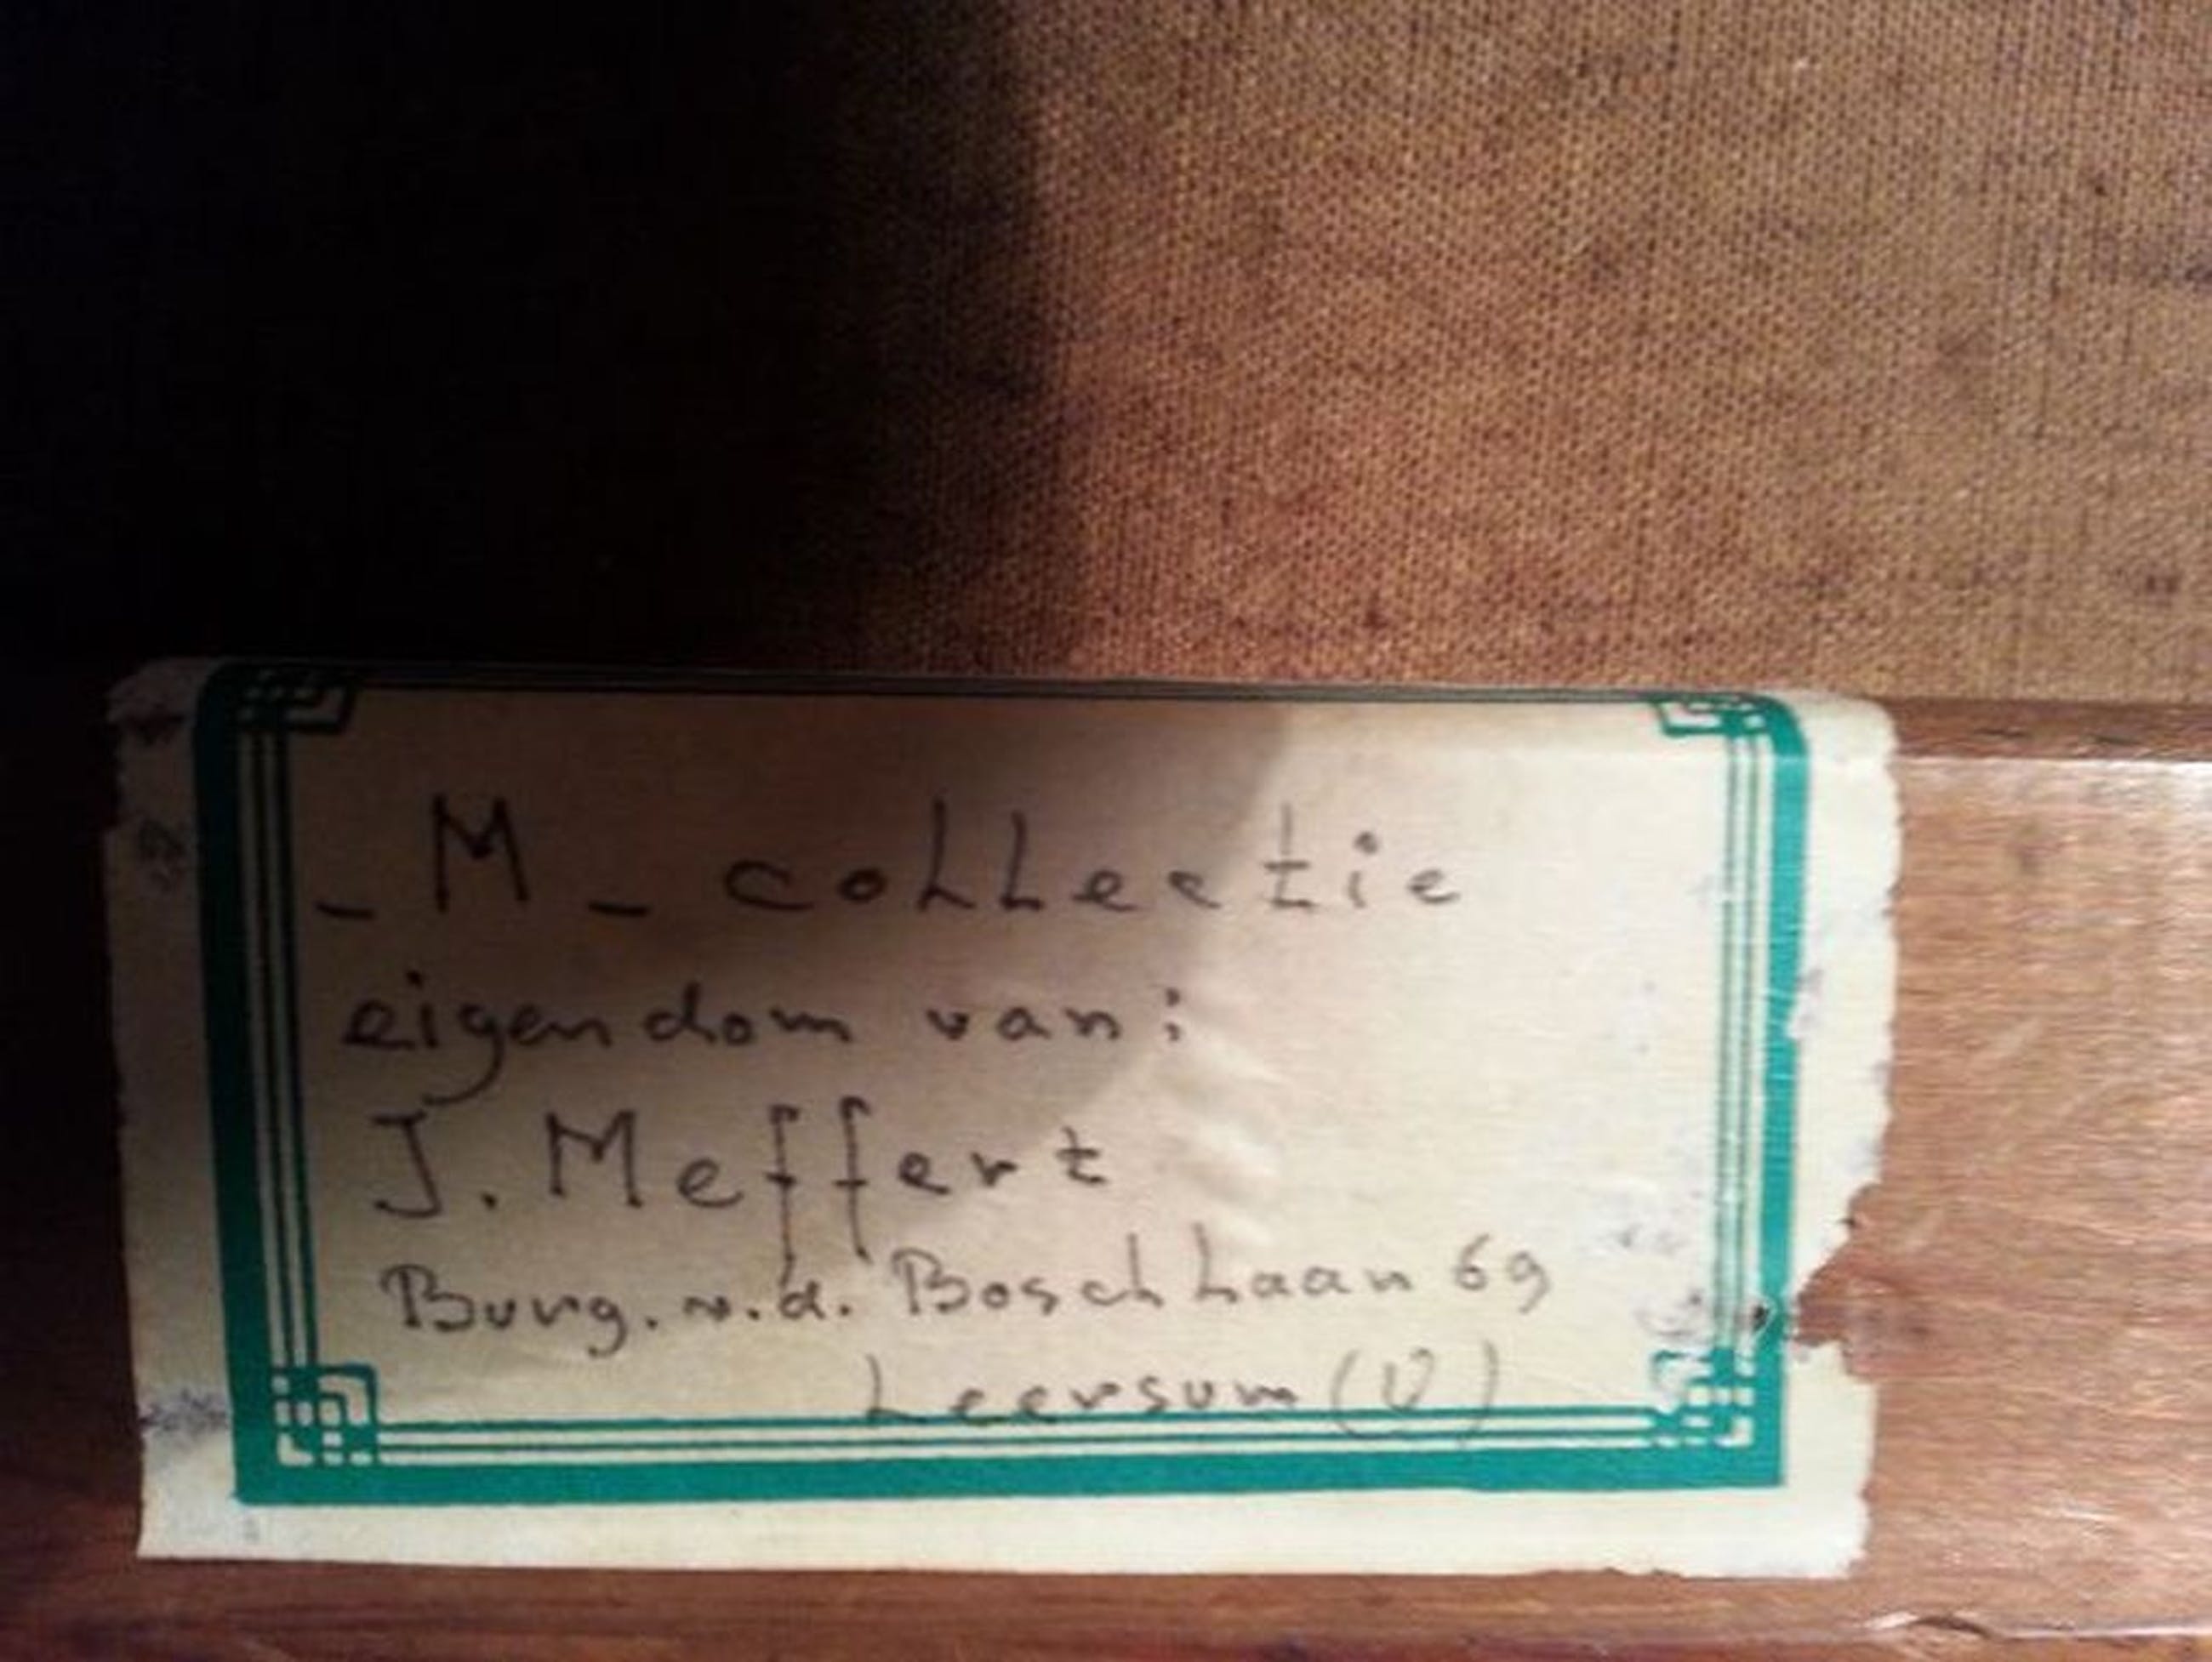 - M - collectie
eigendom van:
J. Meffert
Burg. v.d. Bosch Laan 69
Leersum (U)